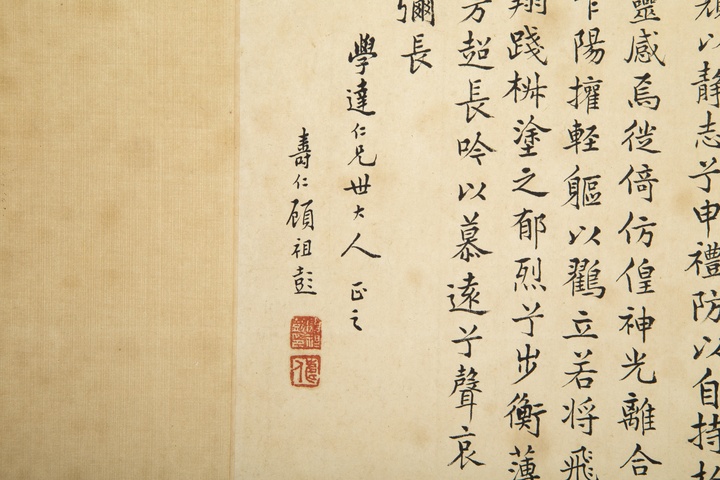 靜志兮申禮防以自持
靈感焉徙倚仿偟神光離合
乍陽擢軽軀以鶴立若将飛
翔踐椒塗之郁烈兮步衡薄
芳超長吟以慕遠兮聲哀
彌長
學達仁兄世大人 正之
壽仁顧祖彭